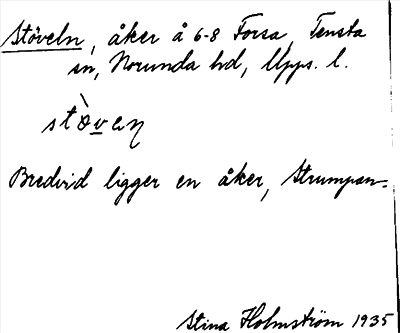 Stöveln, åker å 6-8 Forsa, Tensta
sn, Norunda hd, Upps. l.
stø̀vεn
Bredvid ligger en åker, Strumpan.
Stina Holmström 1935